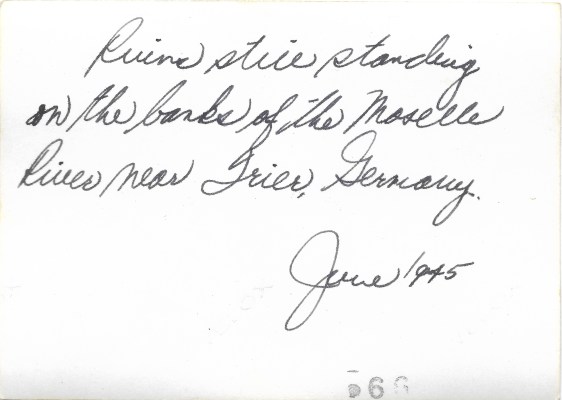 Ruins still standing
on the banks of the Moselle
River near Trier, Germany.
June 1945